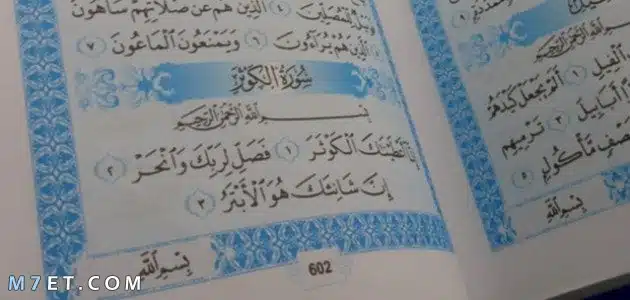 فَوَيْلٌ لِّلْمُصَلِّينَ ٤ الَّذِينَ هُمْ عَن صَلَاتِهِمْ سَاهُونَ
الَّذِينَ هُمْ يُرَاءُونَ ٦ وَيَمْنَعُونَ الْمَاعُونَ ٧
سُورَةُ الْكَوْثَرِ
بِسْمِ اللَّهِ الرَّحْمَٰنِ الرَّحِيمِ
إِنَّا أَعْطَيْنَاكَ الْكَوْثَرَ ١ فَصَلِّ لِرَبِّكَ وَانْحَرْ ٢
إِنَّ شَانِئَكَ هُوَ الْأَبْتَرُ ٣
بِسْمِ اللَّهِ
602
الْفِيلِ
بِسْمِ اللَّهِ الرَّحْمَٰنِ الرَّحِيمِ
الْفِيلِ ١ أَلَمْ يَجْعَلْ كَيْدَهُمْ
أَبَابِيلَ ٣ تَرْمِيهِم
كَعَصْفٍ مَّأْكُولٍ ٥
بِسْمِ اللَّهِ
M7ET.COM